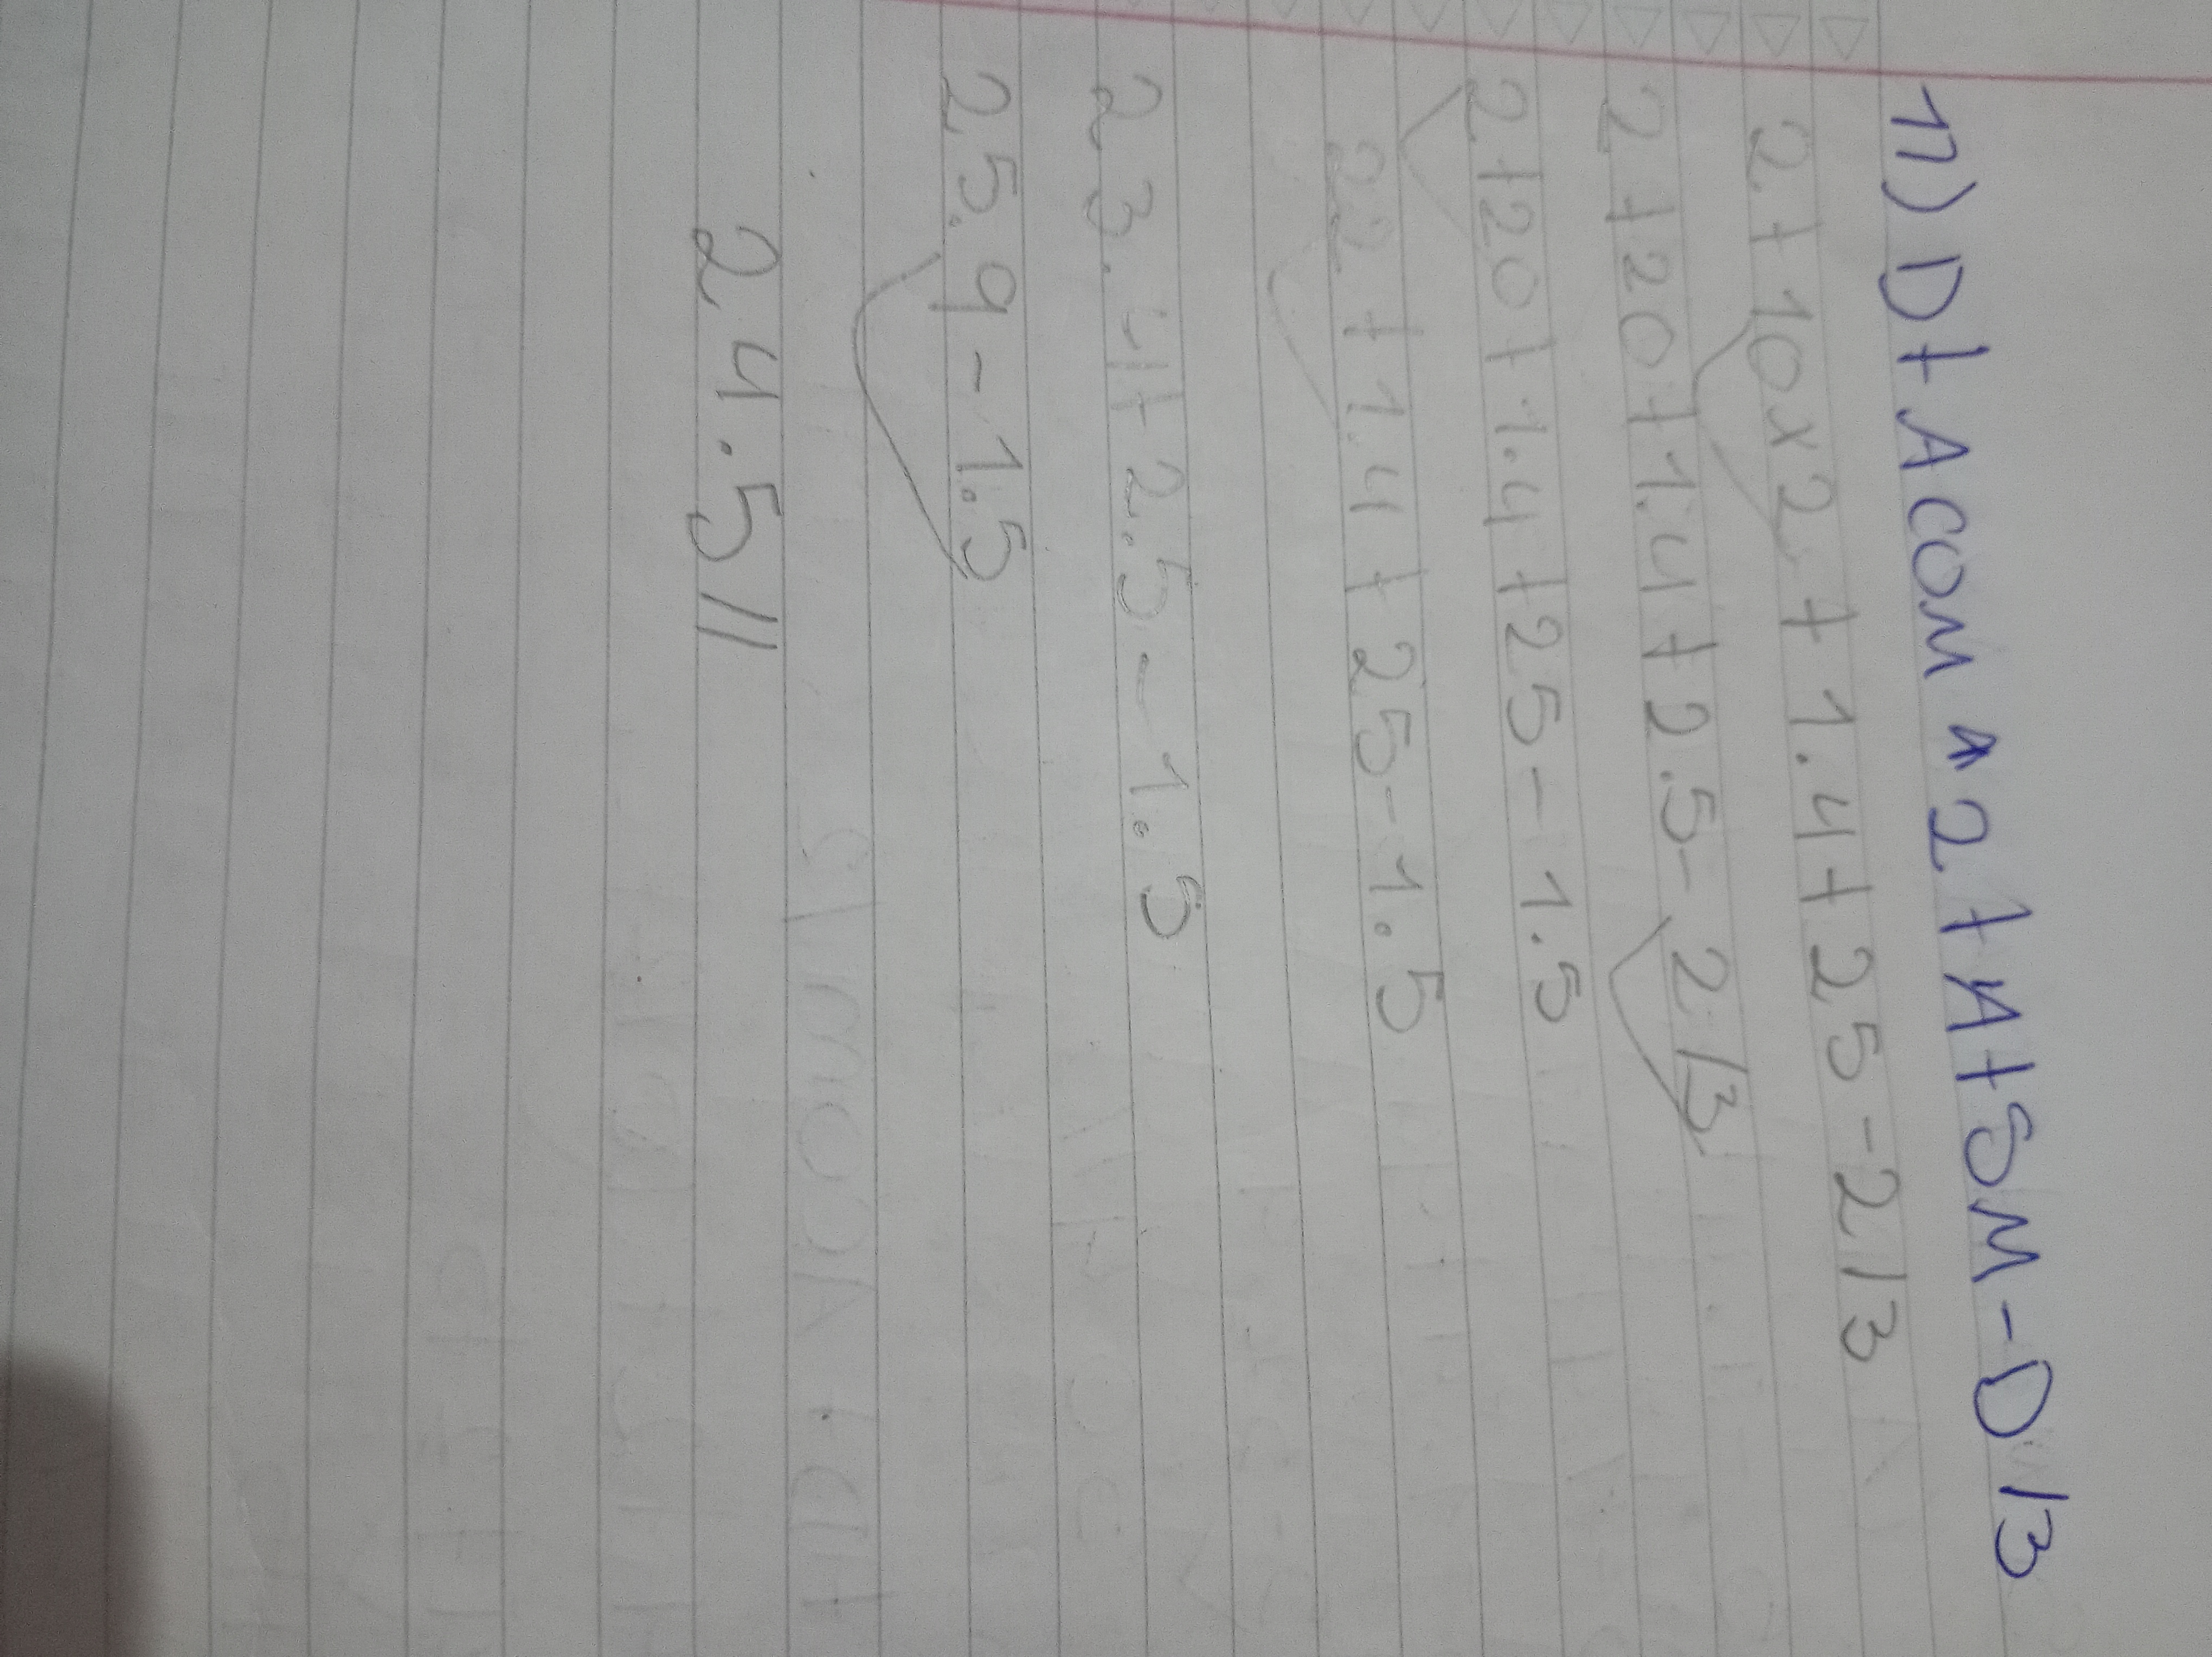 17) D + A COM ^ 2 + A + SM - D / 3
2 + 10 x 2 + 1.4 + 25 - 2 / 3
2 + 20 + 1.4 + 2.5 - 2 / 3
2 + 20 + 1.4 + 25 - 1.5
22 + 1.4 + 25 - 1.5
23.4 + 2.5 - 1.5
25.9 - 1.5
24.5 //